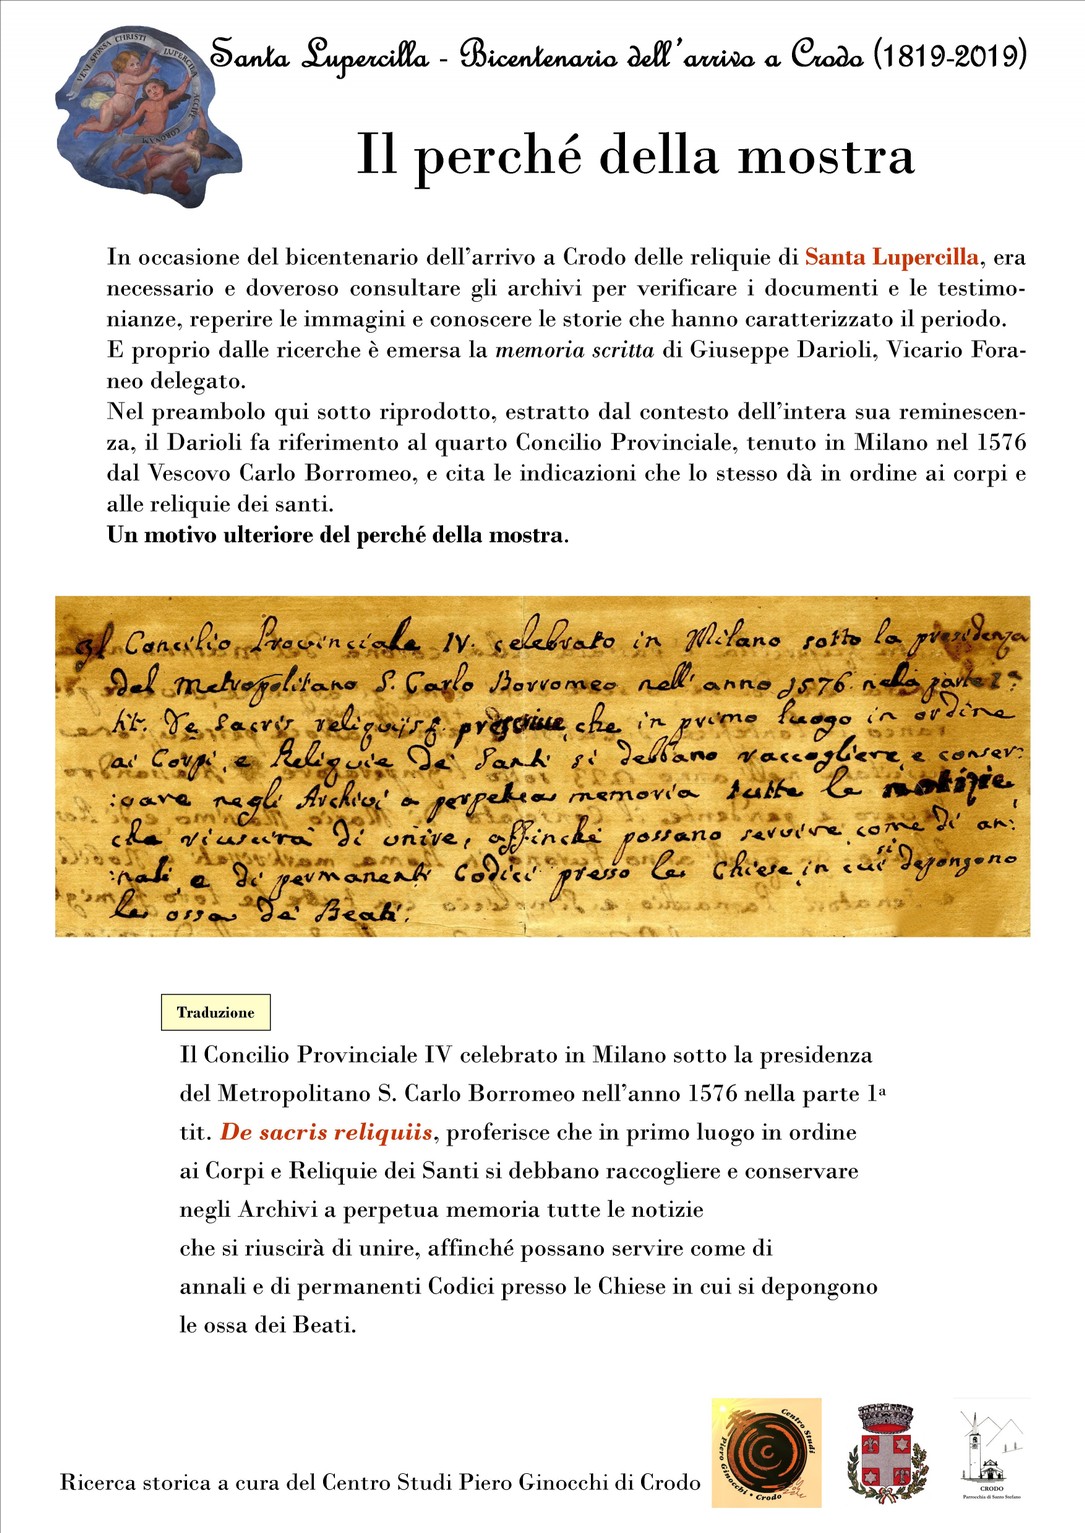 VENI SPONSA CHRISTI LUPERCILLA ACCIPE CORONAM
Santa Lupercilla - Bicentenario dell'arrivo a Crodo (1819-2019)
Il perché della mostra
In occasione del bicentenario dell'arrivo a Crodo delle reliquie di Santa Lupercilla, era
necessario e doveroso consultare gli archivi per verificare i documenti e le testimo-
nianze, reperire le immagini e conoscere le storie che hanno caratterizzato il periodo.
E proprio dalle ricerche è emersa la memoria scritta di Giuseppe Darioli, Vicario Fora-
neo delegato.
Nel preambolo qui sotto riprodotto, estratto dal contesto dell'intera sua reminescen-
za, il Darioli fa riferimento al quarto Concilio Provinciale, tenuto in Milano nel 1576
dal Vescovo Carlo Borromeo, e cita le indicazioni che lo stesso dà in ordine ai corpi e
alle reliquie dei santi.
Un motivo ulteriore del perché della mostra.
Il Concilio Provinciale IV. celebrato in Milano sotto la presidenza
del Metropolitano S. Carlo Borromeo nell' anno 1576 nella parte 1ª
tit. De sacris reliquijs che in primo luogo in ordine
ai Corpi, e Reliquie de' Santi si debbano raccogliere, e conser:
:vare negli Archivi a perpetua memoria tutte le notizie,
che riuscirà di unire, affinché possano servire come di an:
:nali, e di permanenti Codici presso le Chiese, in cui si depongono
le ossa de' Beati.
Traduzione
Il Concilio Provinciale IV celebrato in Milano sotto la presidenza
del Metropolitano S. Carlo Borromeo nell'anno 1576 nella parte 1ª
tit. De sacris reliquiis, proferisce che in primo luogo in ordine
ai Corpi e Reliquie dei Santi si debbano raccogliere e conservare
negli Archivi a perpetua memoria tutte le notizie
che si riuscirà di unire, affinché possano servire come di
annali e di permanenti Codici presso le Chiese in cui si depongono
le ossa dei Beati.
Ricerca storica a cura del Centro Studi Piero Ginocchi di Crodo
Centro Studi
Piero Ginocchi • Crodo
CRODO
Parrocchia di Santo Stefano